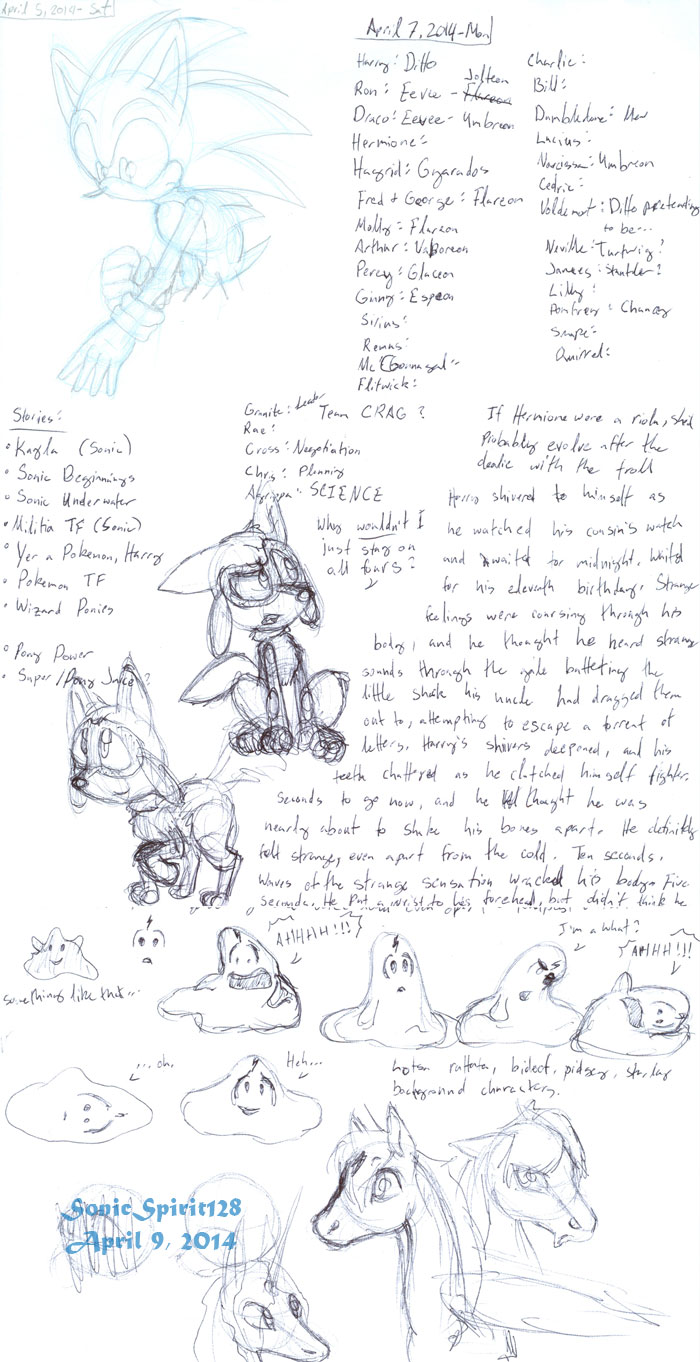 April 5, 2014- Sat
April 7, 2014-Mon
Harry: Ditto
Ron: Eevee - Flareon Jolteon
Draco: Eevee- Umbreon
Hermione:
Hagrid: Gyarados
Fred & George: Flareon
Molly: Flareon
Arthur: Vaporeon
Percy: Glaceon
Ginny: Espeon
Sirius:
Remus:
McGonnagal:
Flitwick:
Charlie:
Bill:
Dumbledore: Mew
Lucius:
Narcissa: Umbreon
Cedric:
Voldemort: Ditto pretending
to be...
Neville: Turtwig?
James: Stantler?
Lilly:
Pomfrey: Chancey
Snape:
Quirrel:
Stories:
• Kayla (Sonic)
• Sonic Beginnings
• Sonic Underwater
• Militia TF (Sonic)
• Yer a Pokemon, Harry
• Pokemon TF
• Wizard Ponies
• Pony Power
• Super/Pony Juice?
Granite: Leader Team CRAG?
Rae:
Gross: Negotiation
Chris: Planning
Agrippa: SCIENCE
Why wouldn't I
just stay on
all fours?
If Hermione were a riolu, she'd
probably evolve after the
dealie with the troll
Harry shivered to himself as
he watched his cousin's watch
and waited for midnight. Waited
for his eleventh birthday. Strange
feelings were coursing through his
body, and he thought he heard strange
sounds through the gale buffeting the
little shack his uncle had dragged them
out to, attempting to escape a torrent of
letters. Harry's shivers deepened, and his
teeth chattered as he clutched himself tighter.
Seconds to go now, and he thought he was
nearly about to shake his bones apart. He definitely
felt strange, even apart from the cold. Ten seconds.
Waves of the strange sensation wracked his body. Five
seconds. He put a wrist to his forehead, but didn't think he
something like that...
AHHHH!!!
I'm a what?
AHHH!!!
...oh.
Heh...
lotsa rattata, bidoof, pidgey, starly
background characters.
SonicSpirit128
April 9, 2014